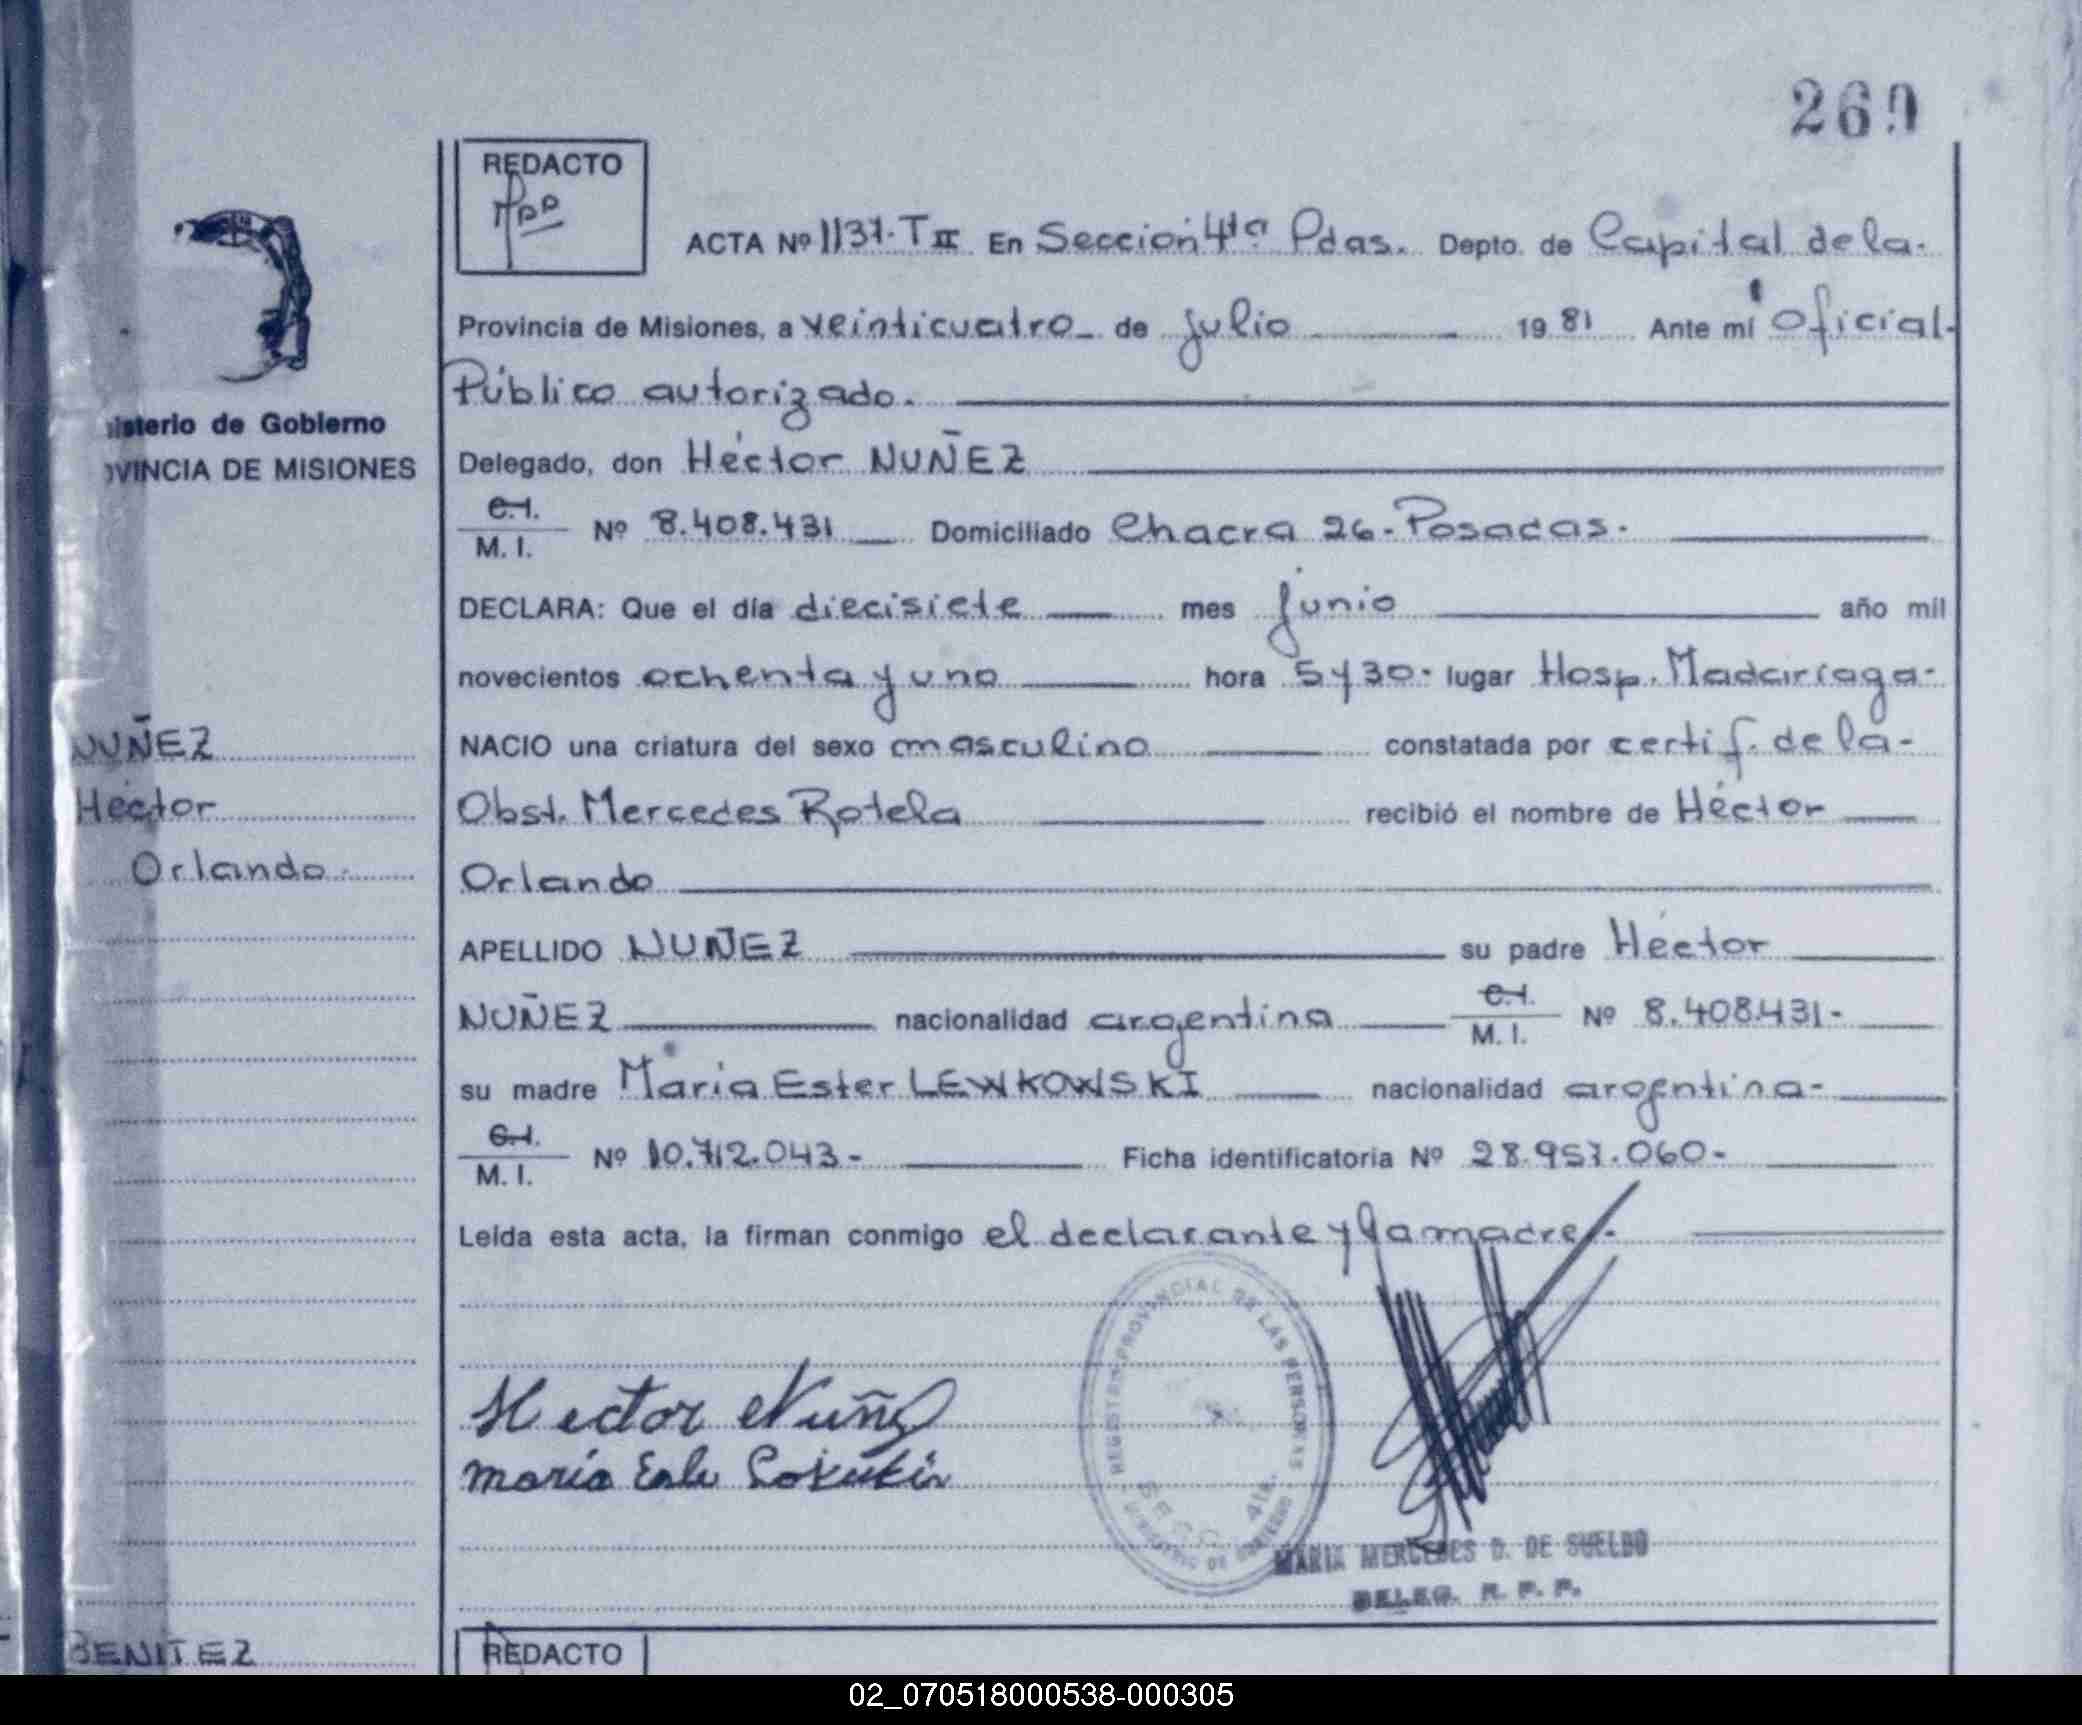 269
REDACTO
ACTA Nº 1137. T III En Sección 4ta Pdas. Depto. de Capital de la.
Provincia de Misiones, a veinticuatro de julio 19 81 Ante mí oficial
Público autorizado.
Ministerio de Gobierno
PROVINCIA DE MISIONES
Delegado, don Héctor NUÑEZ
C.I. M. I. Nº 8.408.431 Domiciliado Chacra 26. Posadas.
DECLARA: Que el día diecisiete mes junio año mil
novecientos ochenta y uno hora 5 y 30. lugar Hosp. Madariaga.
NUÑEZ
NACIO una criatura del sexo masculino constatada por certif. de la-
Héctor
Obst. Mercedes Rotela recibió el nombre de Héctor
Orlando.
Orlando
APELLIDO NUÑEZ su padre Héctor
NUÑEZ nacionalidad argentina C.I. M. I. Nº 8.408.431-
su madre María Ester LEWKOWSKI nacionalidad argentina-
C.I. M. I. Nº 10.712.043- Ficha identificatoria Nº 28.957.060-
Leída esta acta, la firman conmigo el declarante y la madre.
REGISTRO PROVINCIAL DE LAS PERSONAS
SECC. 4ta.
MINISTERIO DE GOBIERNO
Hector Nuñez
maría
MARIA MERCEDES D. DE SUELDO
DELEG. R. P. P.
BENITEZ
REDACTO
02_070518000538-000305